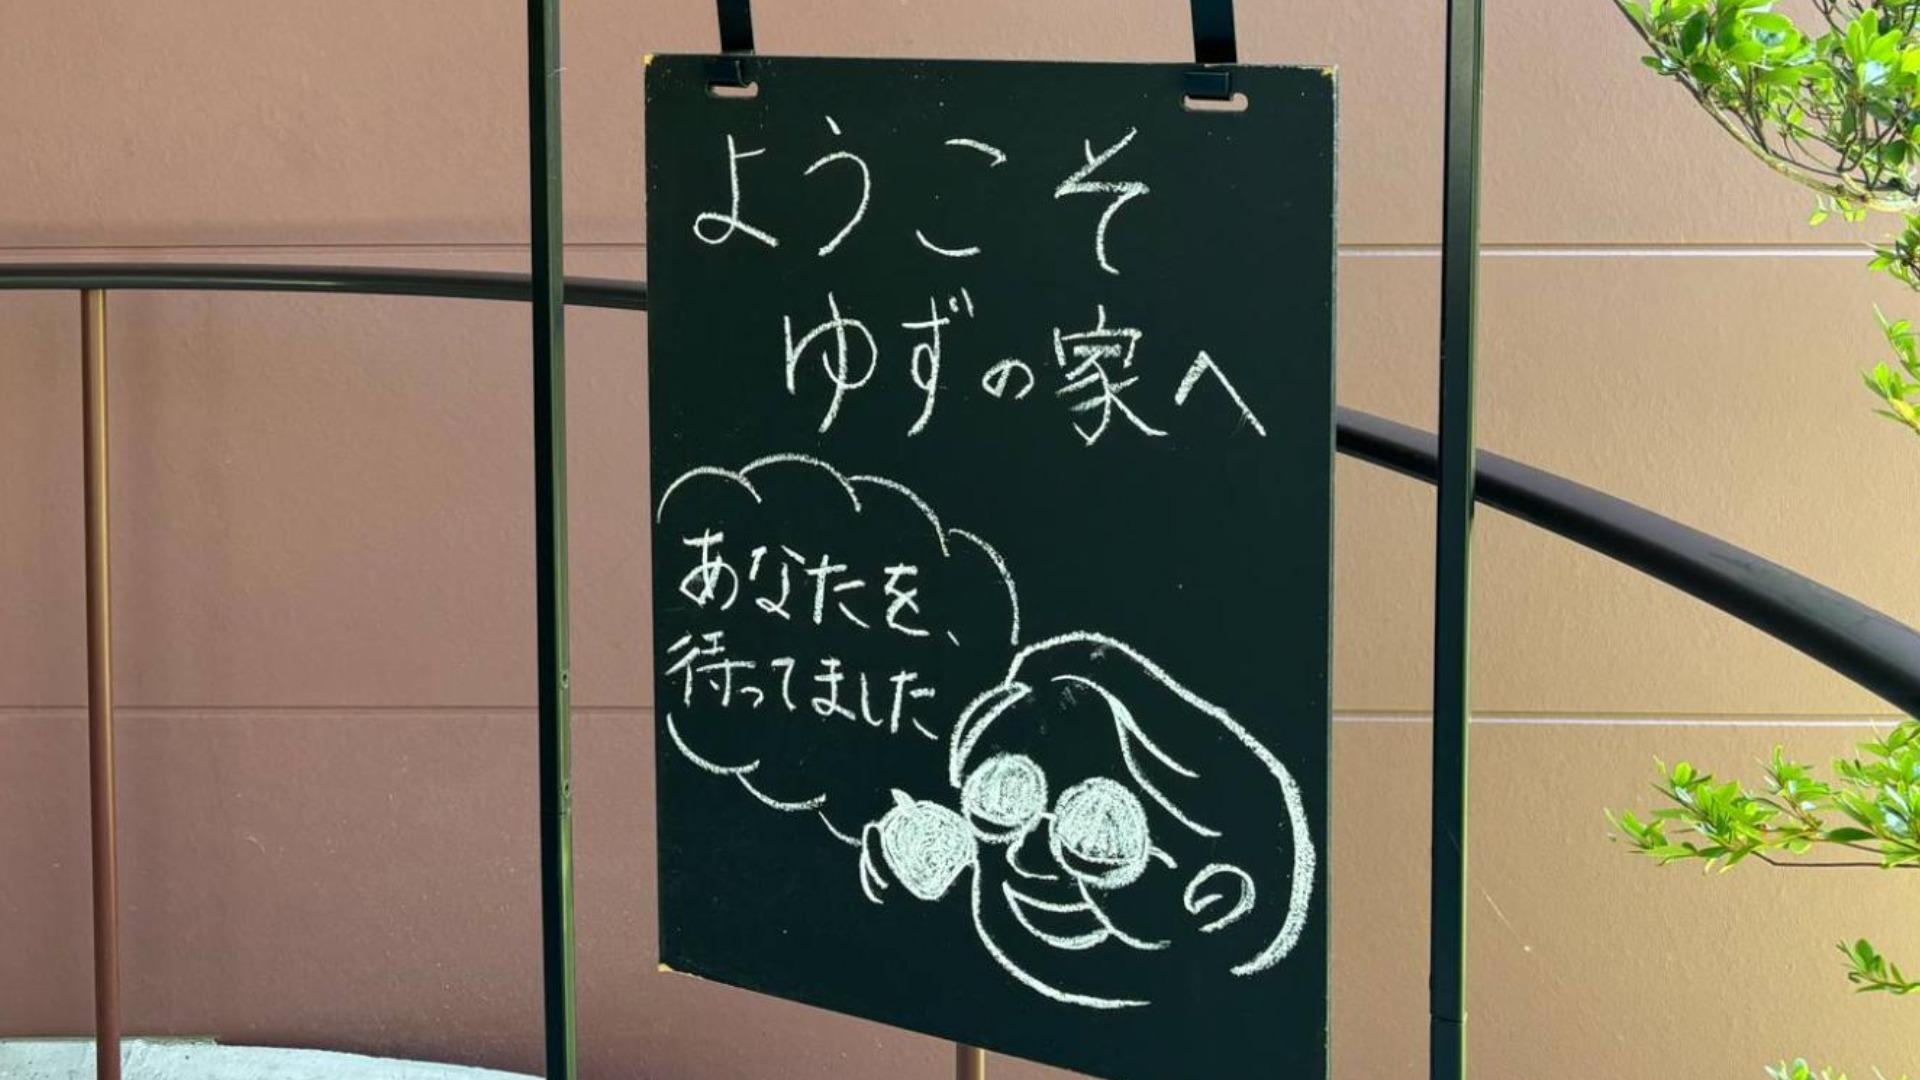 ようこそ
ゆずの家へ
あなたを、
待ってました